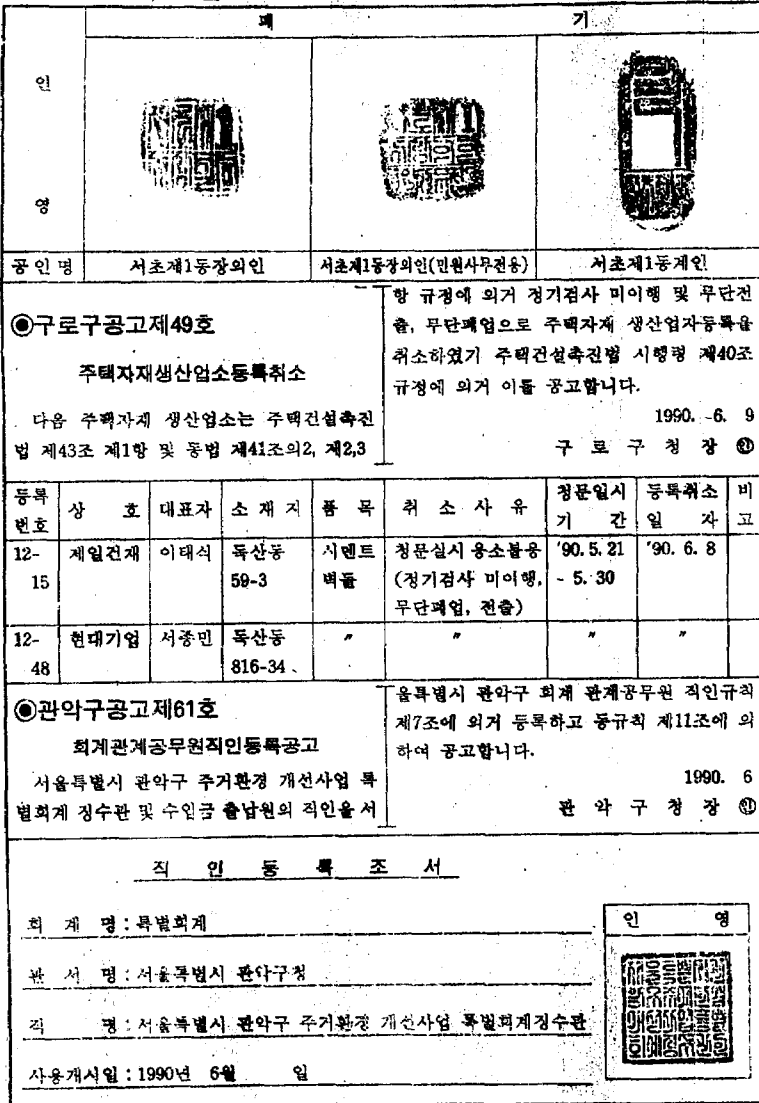 폐 기
인
영
공인명 서초제1동장의인 서초제1동장의인(민원사무전용) 서초제1동계인
◉구로구공고제49호
주택자재생산업소등록취소
다음 주택자재 생산업소는 주택건설촉진
법 제43조 제1항 및 동법 제41조의2, 제2,3
항 규정에 의거 정기검사 미이행 및 무단전
출, 무단폐업으로 주택자재 생산업자등록을
취소하였기 주택건설촉진법 시행령 제40조
규정에 의거 이를 공고합니다.
1990. 6. 9
구 로 구 청 장 ㊞
등록 청문일시 등록취소 비
상 호 대표자 소 재 지 품 목 취 소 사 유
번호 기 간 일 자 고
12- 제일건재 이태식 독산동 시멘트 청문실시 응소불응 '90. 5. 21 '90. 6. 8
15 59-3 벽돌 (정기검사 미이행, - 5. 30
무단폐업, 전출)
12- 현대기업 서종민 독산동 〃 〃 〃 〃
48 816-34
◉관악구공고제61호
회계관계공무원직인등록공고
서울특별시 관악구 주거환경 개선사업 특
별회계 징수관 및 수입금 출납원의 직인을 서
울특별시 관악구 회계 관계공무원 직인규칙
제7조에 의거 등록하고 동규칙 제11조에 의
하여 공고합니다.
1990. 6
관 악 구 청 장 ㊞
직 인 등 록 조 서
회 계 명 : 특별회계
관 서 명 : 서울특별시 관악구청
직 명 : 서울특별시 관악구 주거환경 개선사업 특별회계징수관
사용개시일 : 1990년 6월 일
인 영